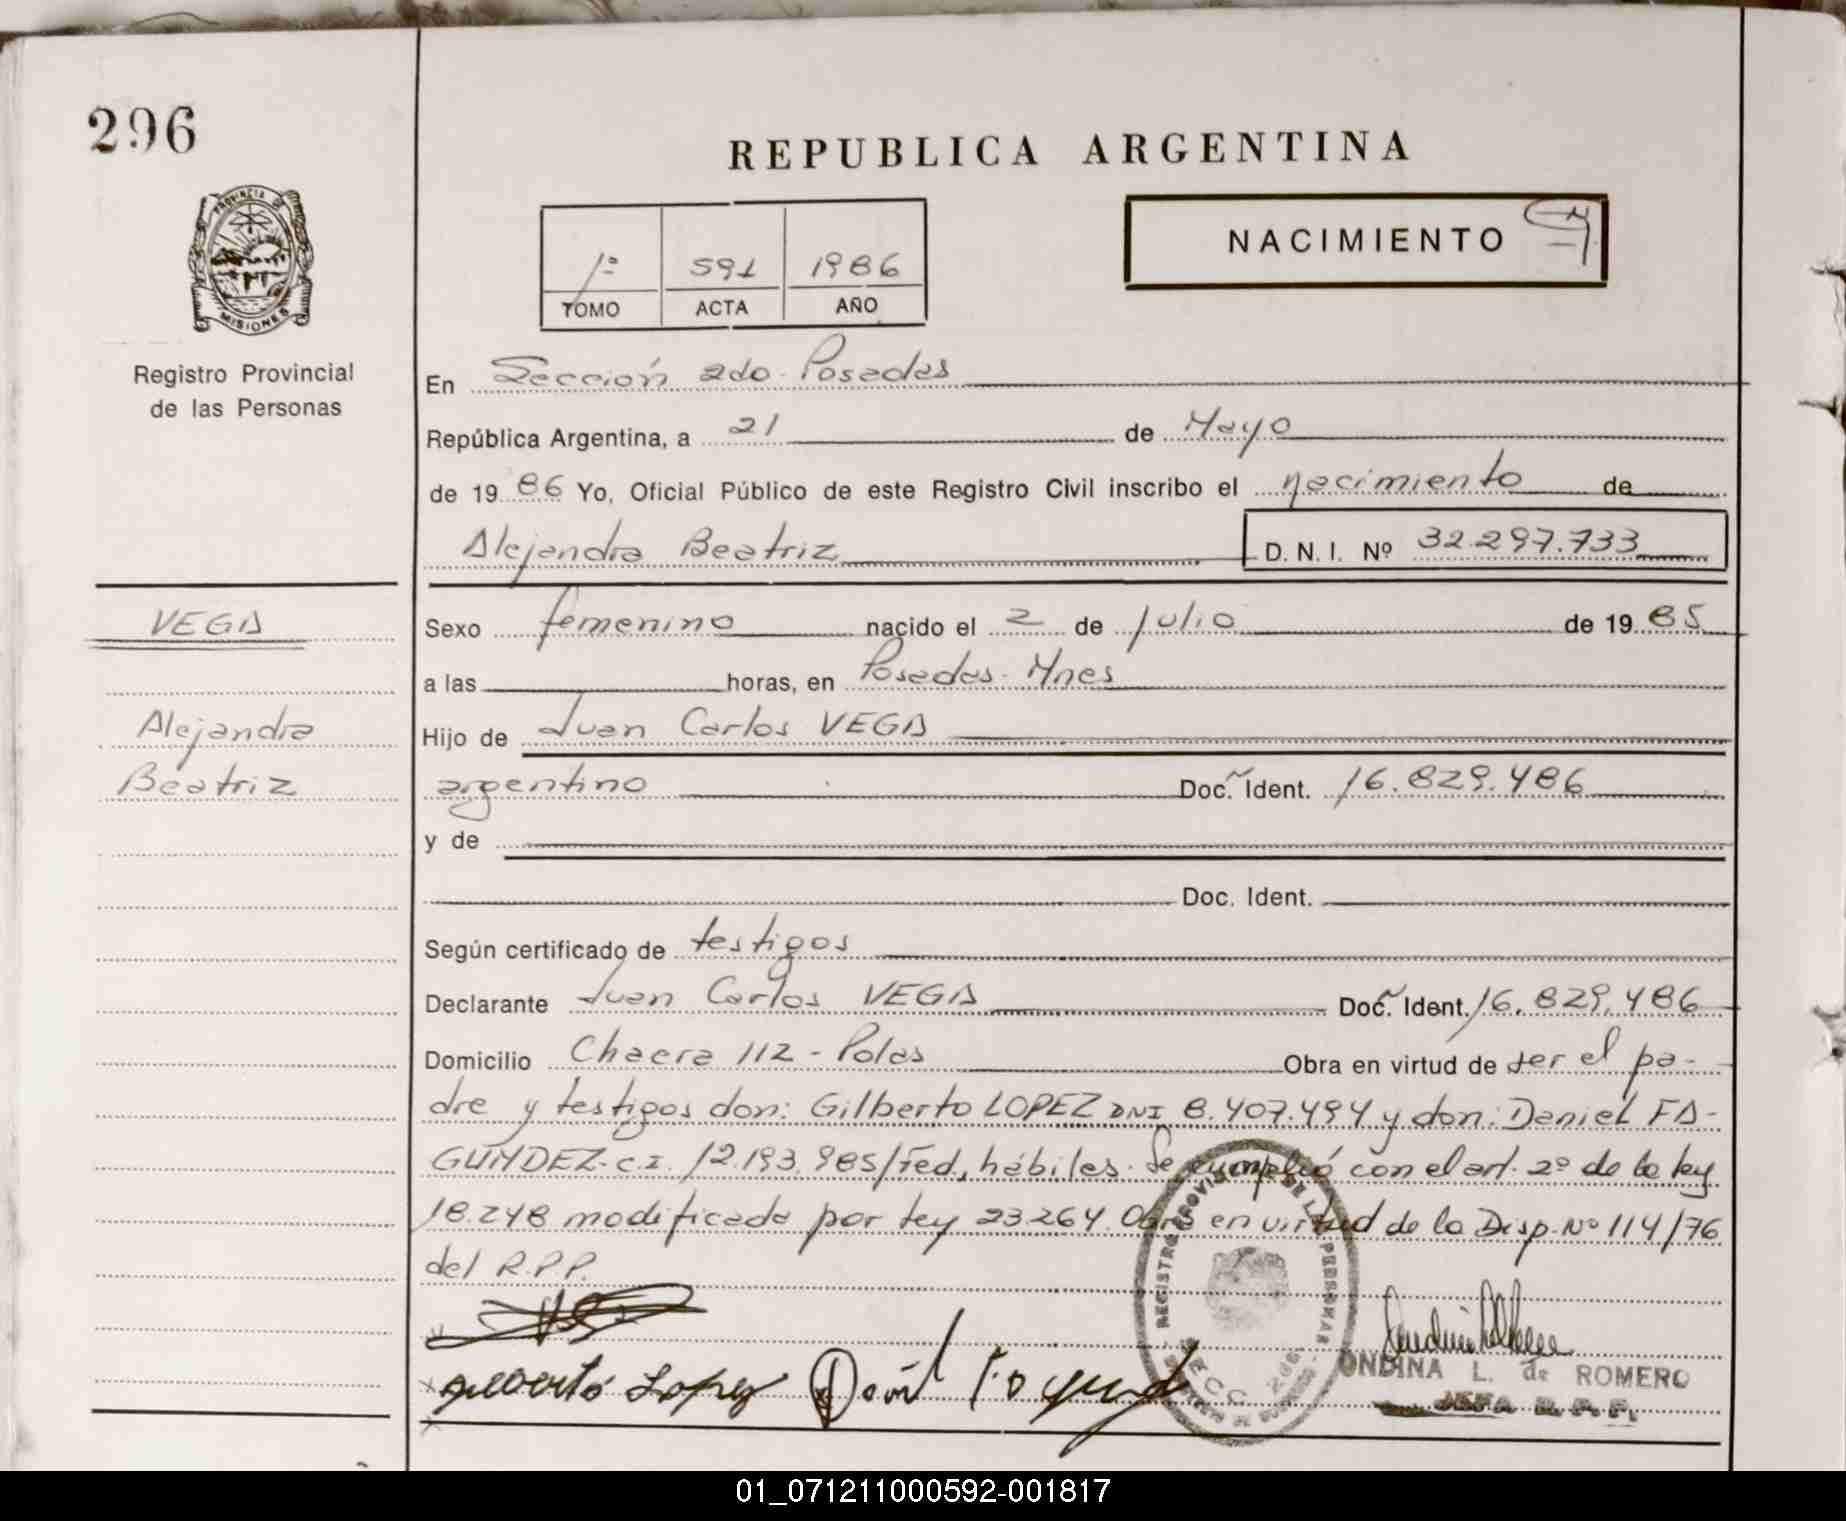 296
REPUBLICA ARGENTINA
PROVINCIA DE
MISIONES
Registro Provincial
de las Personas
1º 591 1986
TOMO ACTA AÑO
NACIMIENTO
En Sección 2do. Posadas
República Argentina, a 21 de Mayo
de 1986 Yo, Oficial Público de este Registro Civil inscribo el nacimiento de
Alejandra Beatriz D. N. I. Nº 32.297.733
VEGA
Alejandra
Beatriz
Sexo femenino nacido el 2 de julio de 1985
a las horas, en Posadas - Mnes
Hijo de Juan Carlos VEGA
argentino Doc. Ident. 16.829.486
y de
Doc. Ident.
Según certificado de testigos
Declarante Juan Carlos VEGA Doc. Ident. 16.829.486
Domicilio Chacra 112 - Pdas Obra en virtud de ser el pa-
dre y testigos don: Gilberto LOPEZ DNI 8.407.494 y don: Daniel FA-
GUNDEZ - C.I. 12.193.985/Fed., hábiles. Se cumplió con el art. 2º de la ley
18.248 modificada por ley 23264. Obra en virtud de la Disp. Nº 114/76
del R.P.P.
Gilberto Lopez
REGISTRO PROVINCIAL DE LAS PERSONAS
ONDINA L. de ROMERO
JEFA R. P. P.
01_071211000592-001817